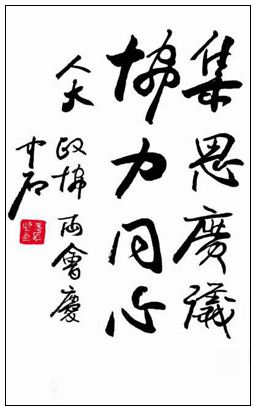 集思廣議
協力同心
人大政協两會慶
中石